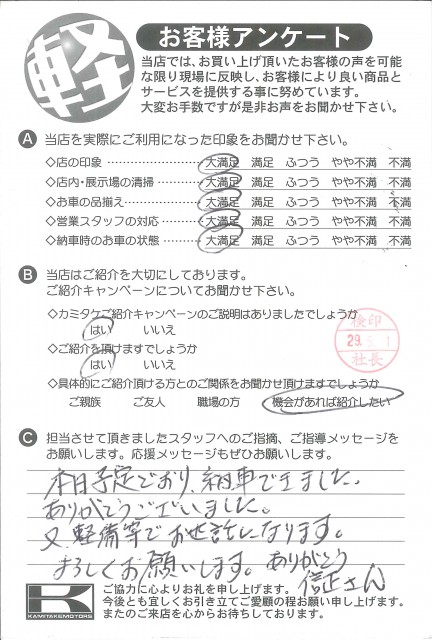 軽
お客様アンケート
当店では、お買い上げ頂いたお客様の声を可能
な限り現場に反映し、お客様により良い商品と
サービスを提供する事に努めています。
大変お手数ですが是非お声をお聞かせ下さい。
A 当店を実際にご利用になった印象をお聞かせ下さい。
◇店の印象 大満足 満足 ふつう やや不満 不満
◇店内・展示場の清掃 大満足 満足 ふつう やや不満 不満
◇お車の品揃え 大満足 満足 ふつう やや不満 不満
◇営業スタッフの対応 大満足 満足 ふつう やや不満 不満
◇納車時のお車の状態 大満足 満足 ふつう やや不満 不満
B 当店はご紹介を大切にしております。
ご紹介キャンペーンについてお聞かせ下さい。
◇カミタケご紹介キャンペーンのご説明はありましたでしょうか
はい いいえ
◇ご紹介を頂けますでしょうか
はい いいえ
検印
29.5.1
社長
◇具体的にご紹介頂ける方とのご関係をお聞かせ頂けますでしょうか
ご親族 ご友人 職場の方 機会があれば紹介したい
C 担当させて頂きましたスタッフへのご指摘、ご指導メッセージを
お願いします。応援メッセージもぜひお願いします。
本日予定どおり、納車できました。
ありがとうございました。
又、整備等でお世話になります。
よろしくお願いします。ありがとう
信正さん
K
KAMITAKEMOTORS
ご協力に心よりお礼を申し上げます。
今後とも宜しくお引き立てご愛顧の程お願い申し上げます。
またのご来店を心からお待ちしております。